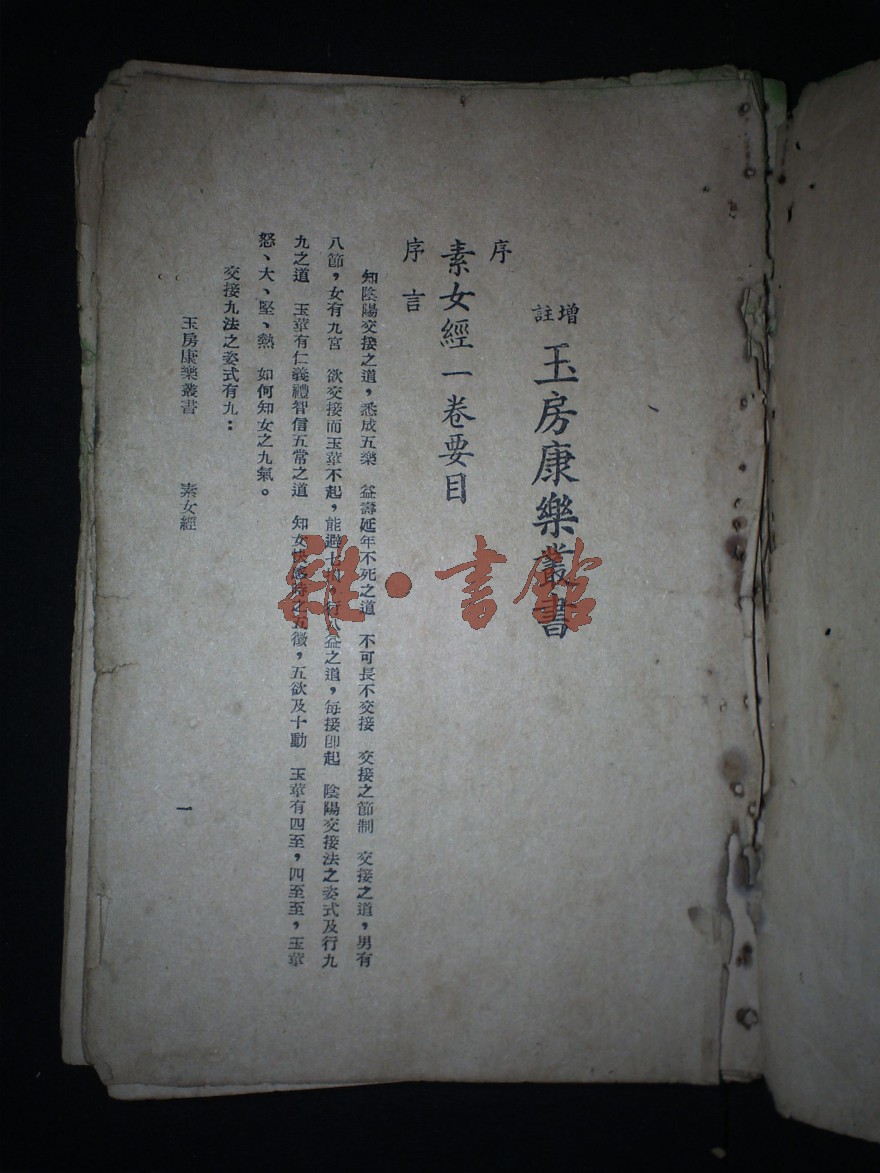 增註 玉房康樂叢書
序
素女經一卷要目
序言
知陰陽交接之道，悉成五樂　益壽延年不死之道　不可長不交接　交接之節制　交接之道，男有
八節，女有九宮　欲交接而玉莖不起，能避七 行八益之道，每接卽起　陰陽交接法之姿式及行九
九之道　玉莖有仁義禮智信五常之道　知女快感時之五徵，五欲及十動　玉莖有四至，四至至，玉莖
怒、大、堅、熱　如何知女之九氣。
交接九法之姿式有九：
玉房康樂叢書　素女經　一
雜·書館